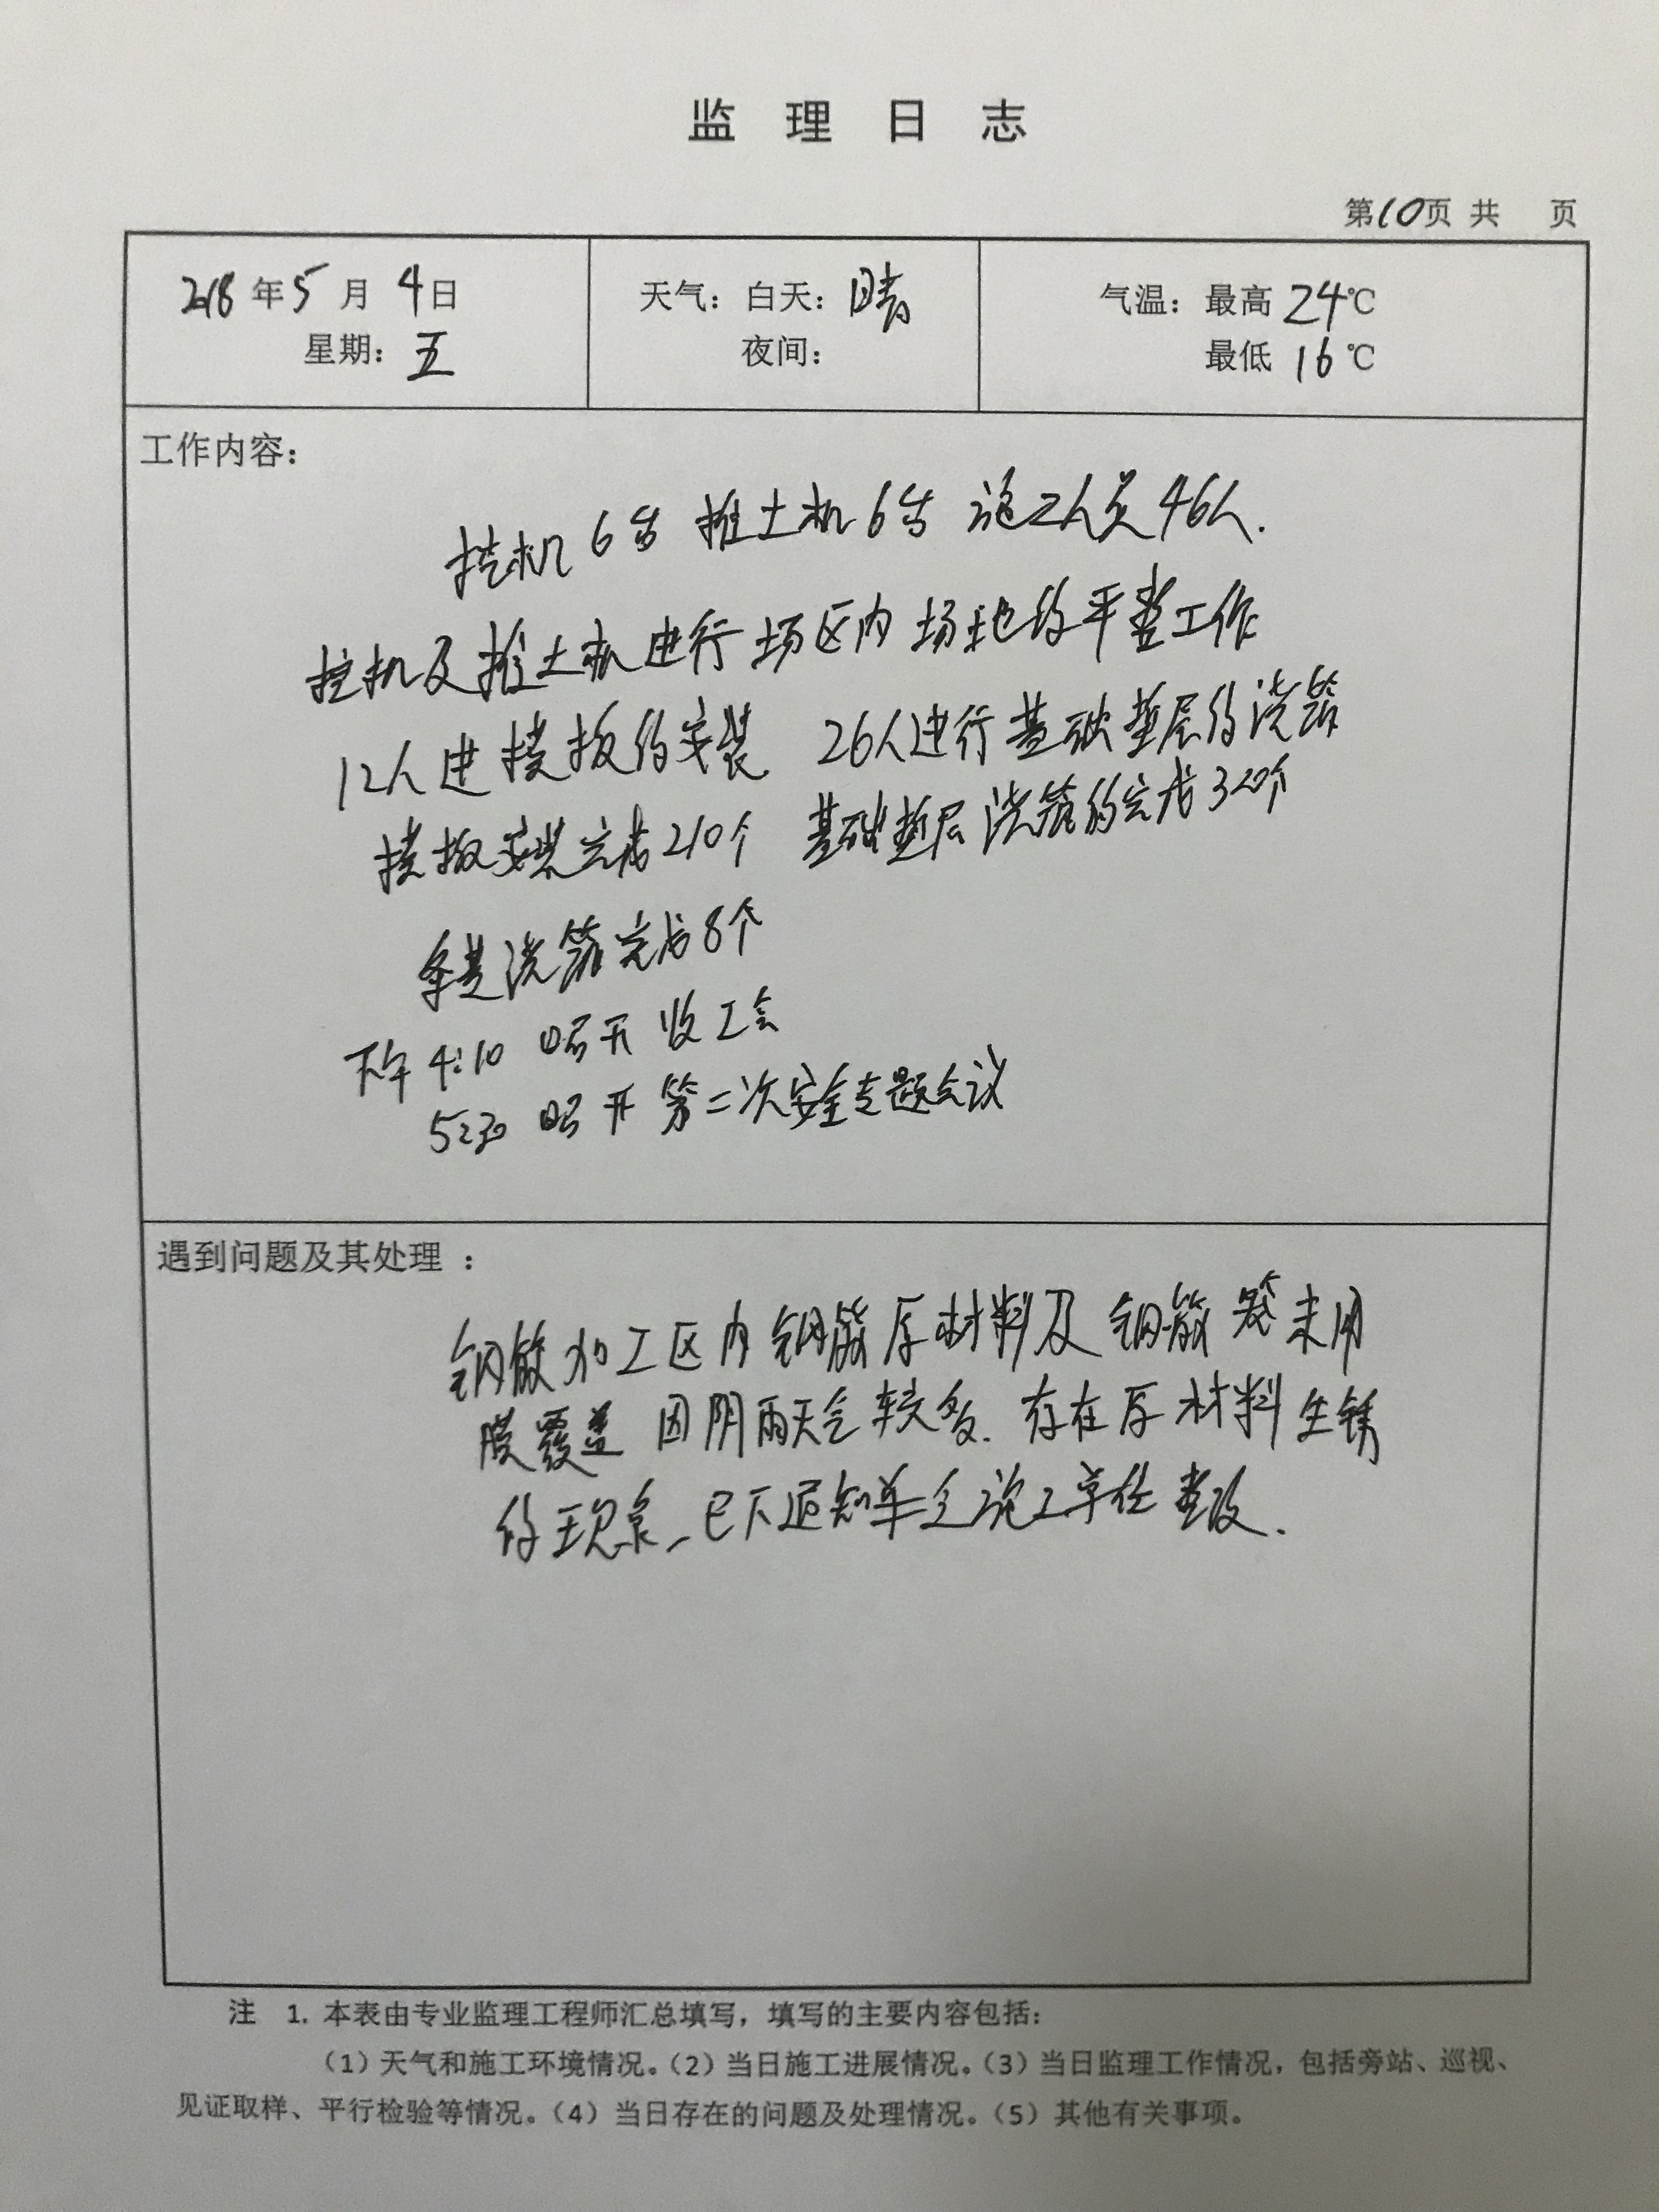 监理日志
第10页 共 页
2018年5月4日
天气：白天：晴
气温：最高24℃
星期：五
夜间：
最低16℃
工作内容：
挖机6台 推土机6台 施工人员46人.
挖机及推土机进行场区内场地的平整工作
12人进模板的安装 26人进行基础垫层的浇筑
模板安装完成210个 基础垫层浇筑的完成320个
条基浇筑完成8个
下午4:10 召开收工会
5:30 召开第二次安全专题会议
遇到问题及其处理：
钢筋加工区内钢筋原材料及钢筋笼未用
膜覆盖 因阴雨天气较多. 存在原材料生锈
的现象, 已下通知单之施工单位整改.
注 1. 本表由专业监理工程师汇总填写，填写的主要内容包括：
（1）天气和施工环境情况。（2）当日施工进展情况。（3）当日监理工作情况，包括旁站、巡视、
见证取样、平行检验等情况。（4）当日存在的问题及处理情况。（5）其他有关事项。